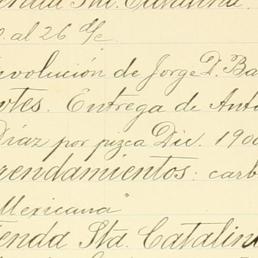 enda Sta. Catalina.
al 26 d/c
evolución de Jorge D. Ba
rtes. Entrega de Anto
Díaz por pizca Dic. 190
rrendamientos: carb
Mexicana"
ienda Sta. Catalin